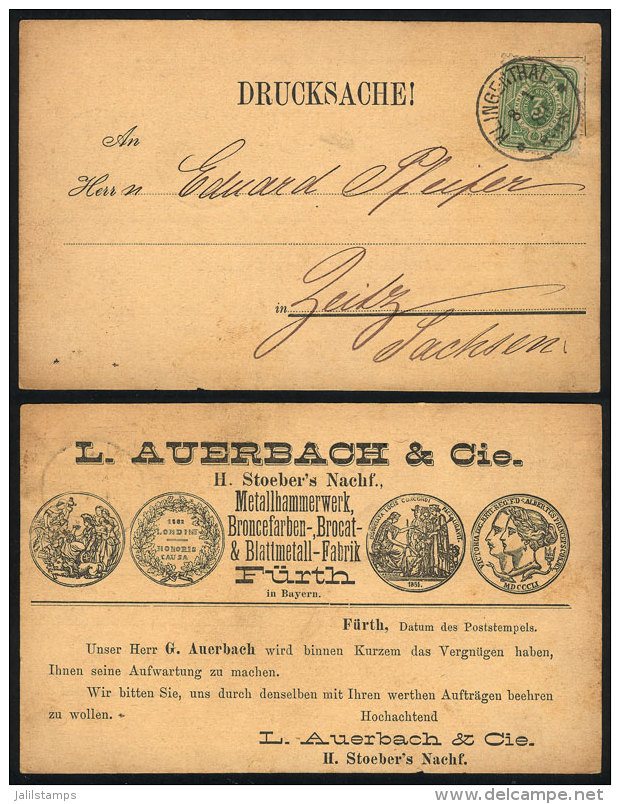 DRUCKSACHE!
KLINGENTHAL
3
An
Herrn Eduard Pfeifer
in Zeitz
Sachsen.
L. AUERBACH & Cie.
H. Stoeber's Nachf.,
Metallhammerwerk,
Broncefarben-, Brocat-
& Blattmetall-Fabrik
Fürth
in Bayern.
1862
LONDINI
HONORIS
CAUSA
1851.
MDCCCLI
Fürth, Datum des Poststempels.
Unser Herr G. Auerbach wird binnen Kurzem das Vergnügen haben,
Ihnen seine Aufwartung zu machen.
Wir bitten Sie, uns durch denselben mit Ihren werthen Aufträgen beehren
zu wollen.
Hochachtend
L. Auerbach & Cie.
H. Stoeber's Nachf.
jalilstamps
delcampe.net